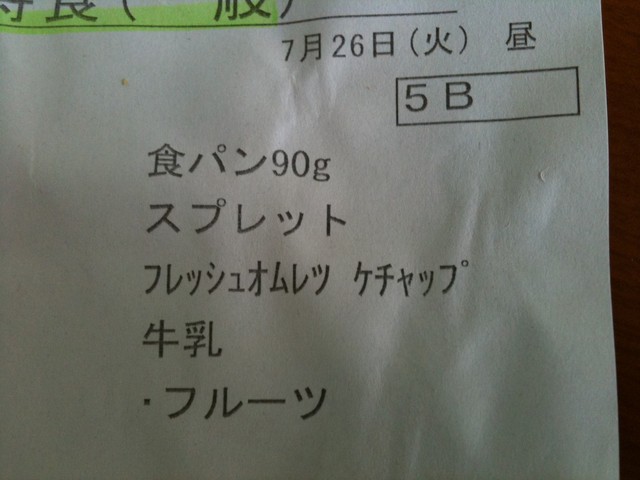 食(一般)
7月26日(火) 昼
5B
食パン90g
スプレット
ﾌﾚｯｼｭｵﾑﾚﾂ ｹﾁｬｯﾌﾟ
牛乳
・フルーツ